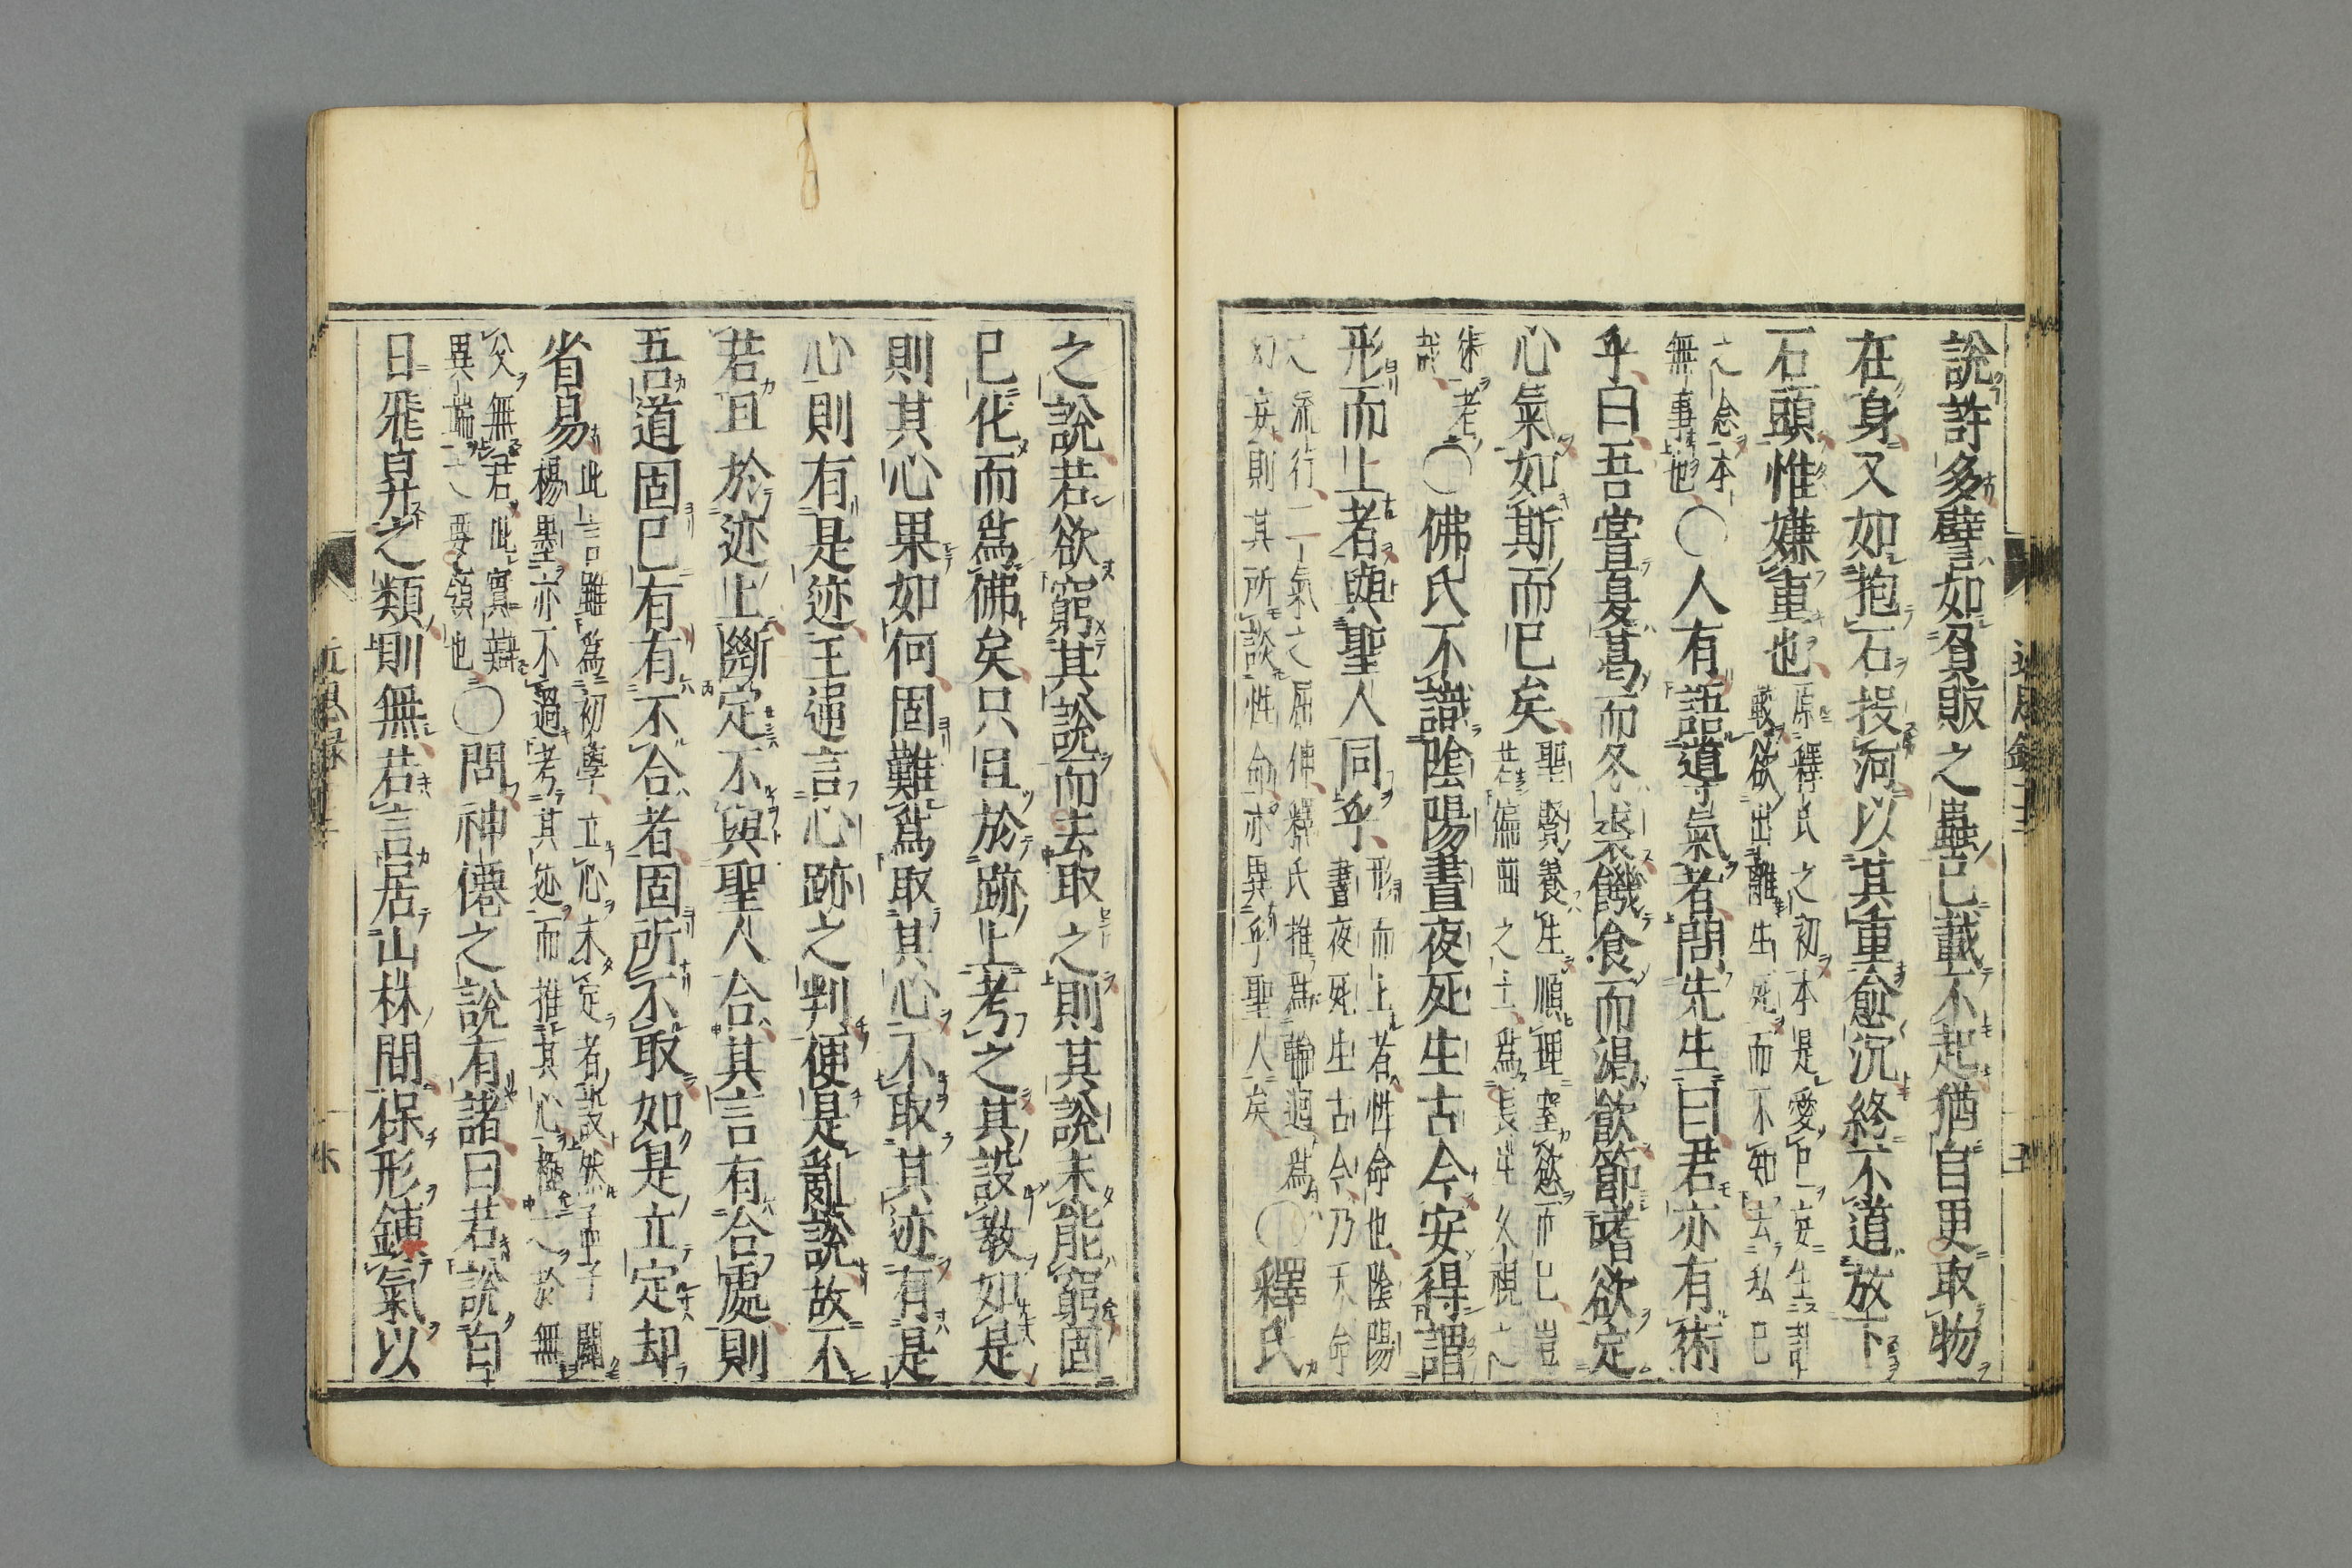 說許多譬如負販之蟲已載不起猶自更取物
在身又如抱石投河以其重愈沉終不道放下
石頭惟嫌重也
原釋氏之初本是愛己妄生計
較欲出離生死而不知去私己
之念本
無事也
〇人有語導氣者問先生曰君亦有術
乎曰吾嘗夏葛而冬裘饑食而渴飲節嗜欲定
心氣如斯而已矣
聖賢養生順理窒慾而已豈
若偏曲之士爲長生久視之
術者
哉
〇佛氏不識陰陽晝夜死生古今安得謂
形而上者與聖人同乎
形而上者性命也陰陽
晝夜死生古今乃天命
之流行二氣之屈伸釋氏推爲輪迴爲
幻妄則其所談性命亦異乎聖人矣
〇釋氏
之說若欲窮其說而去取之則其說未能窮固
已化而爲佛矣只且於跡上考之其設敎如是
則其心果如何固難爲取其心不取其迹有是
心則有是迹王通言心跡之判便是亂說故不
若且於迹上斷定不與聖人合其言有合處則
吾道固已有有不合者固所不取如是立定却
省易
此言雖爲初學立心未定者設然孟子闢
楊墨亦不過考其迹而推其心極之於無
父無君此實辯
異端之要領也
〇問神僊之說有諸曰若說白
日飛昇之類則無若言居山林間保形鍊氣以
近思錄